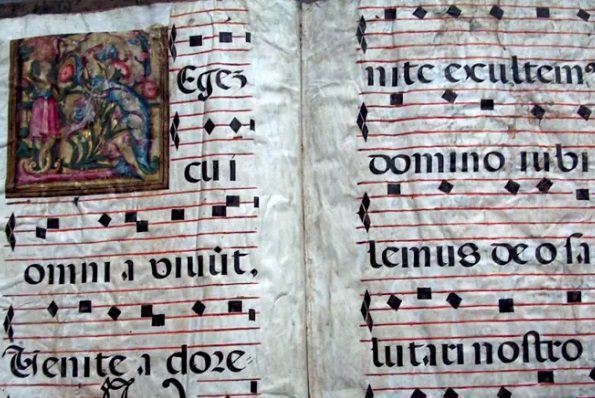 REgez
cui
omnia viuùt.
Venite adore
nite exultemꝰ
domino iubi
lemus deo sa
lutari nostro